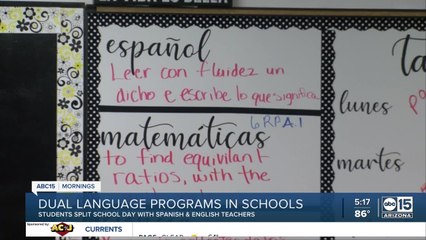 español
Leer con fluidez un
dicho e escribe lo que significa
matemáticas
6 RP.A.1
to find equivilant
ratios, with the
ta
lunes
martes
ABC15 MORNINGS
DUAL LANGUAGE PROGRAMS IN SCHOOLS
STUDENTS SPLIT SCHOOL DAY WITH SPANISH & ENGLISH TEACHERS
5:17
86°
abc 15
ARIZONA
Sponsored by
CURRENTS